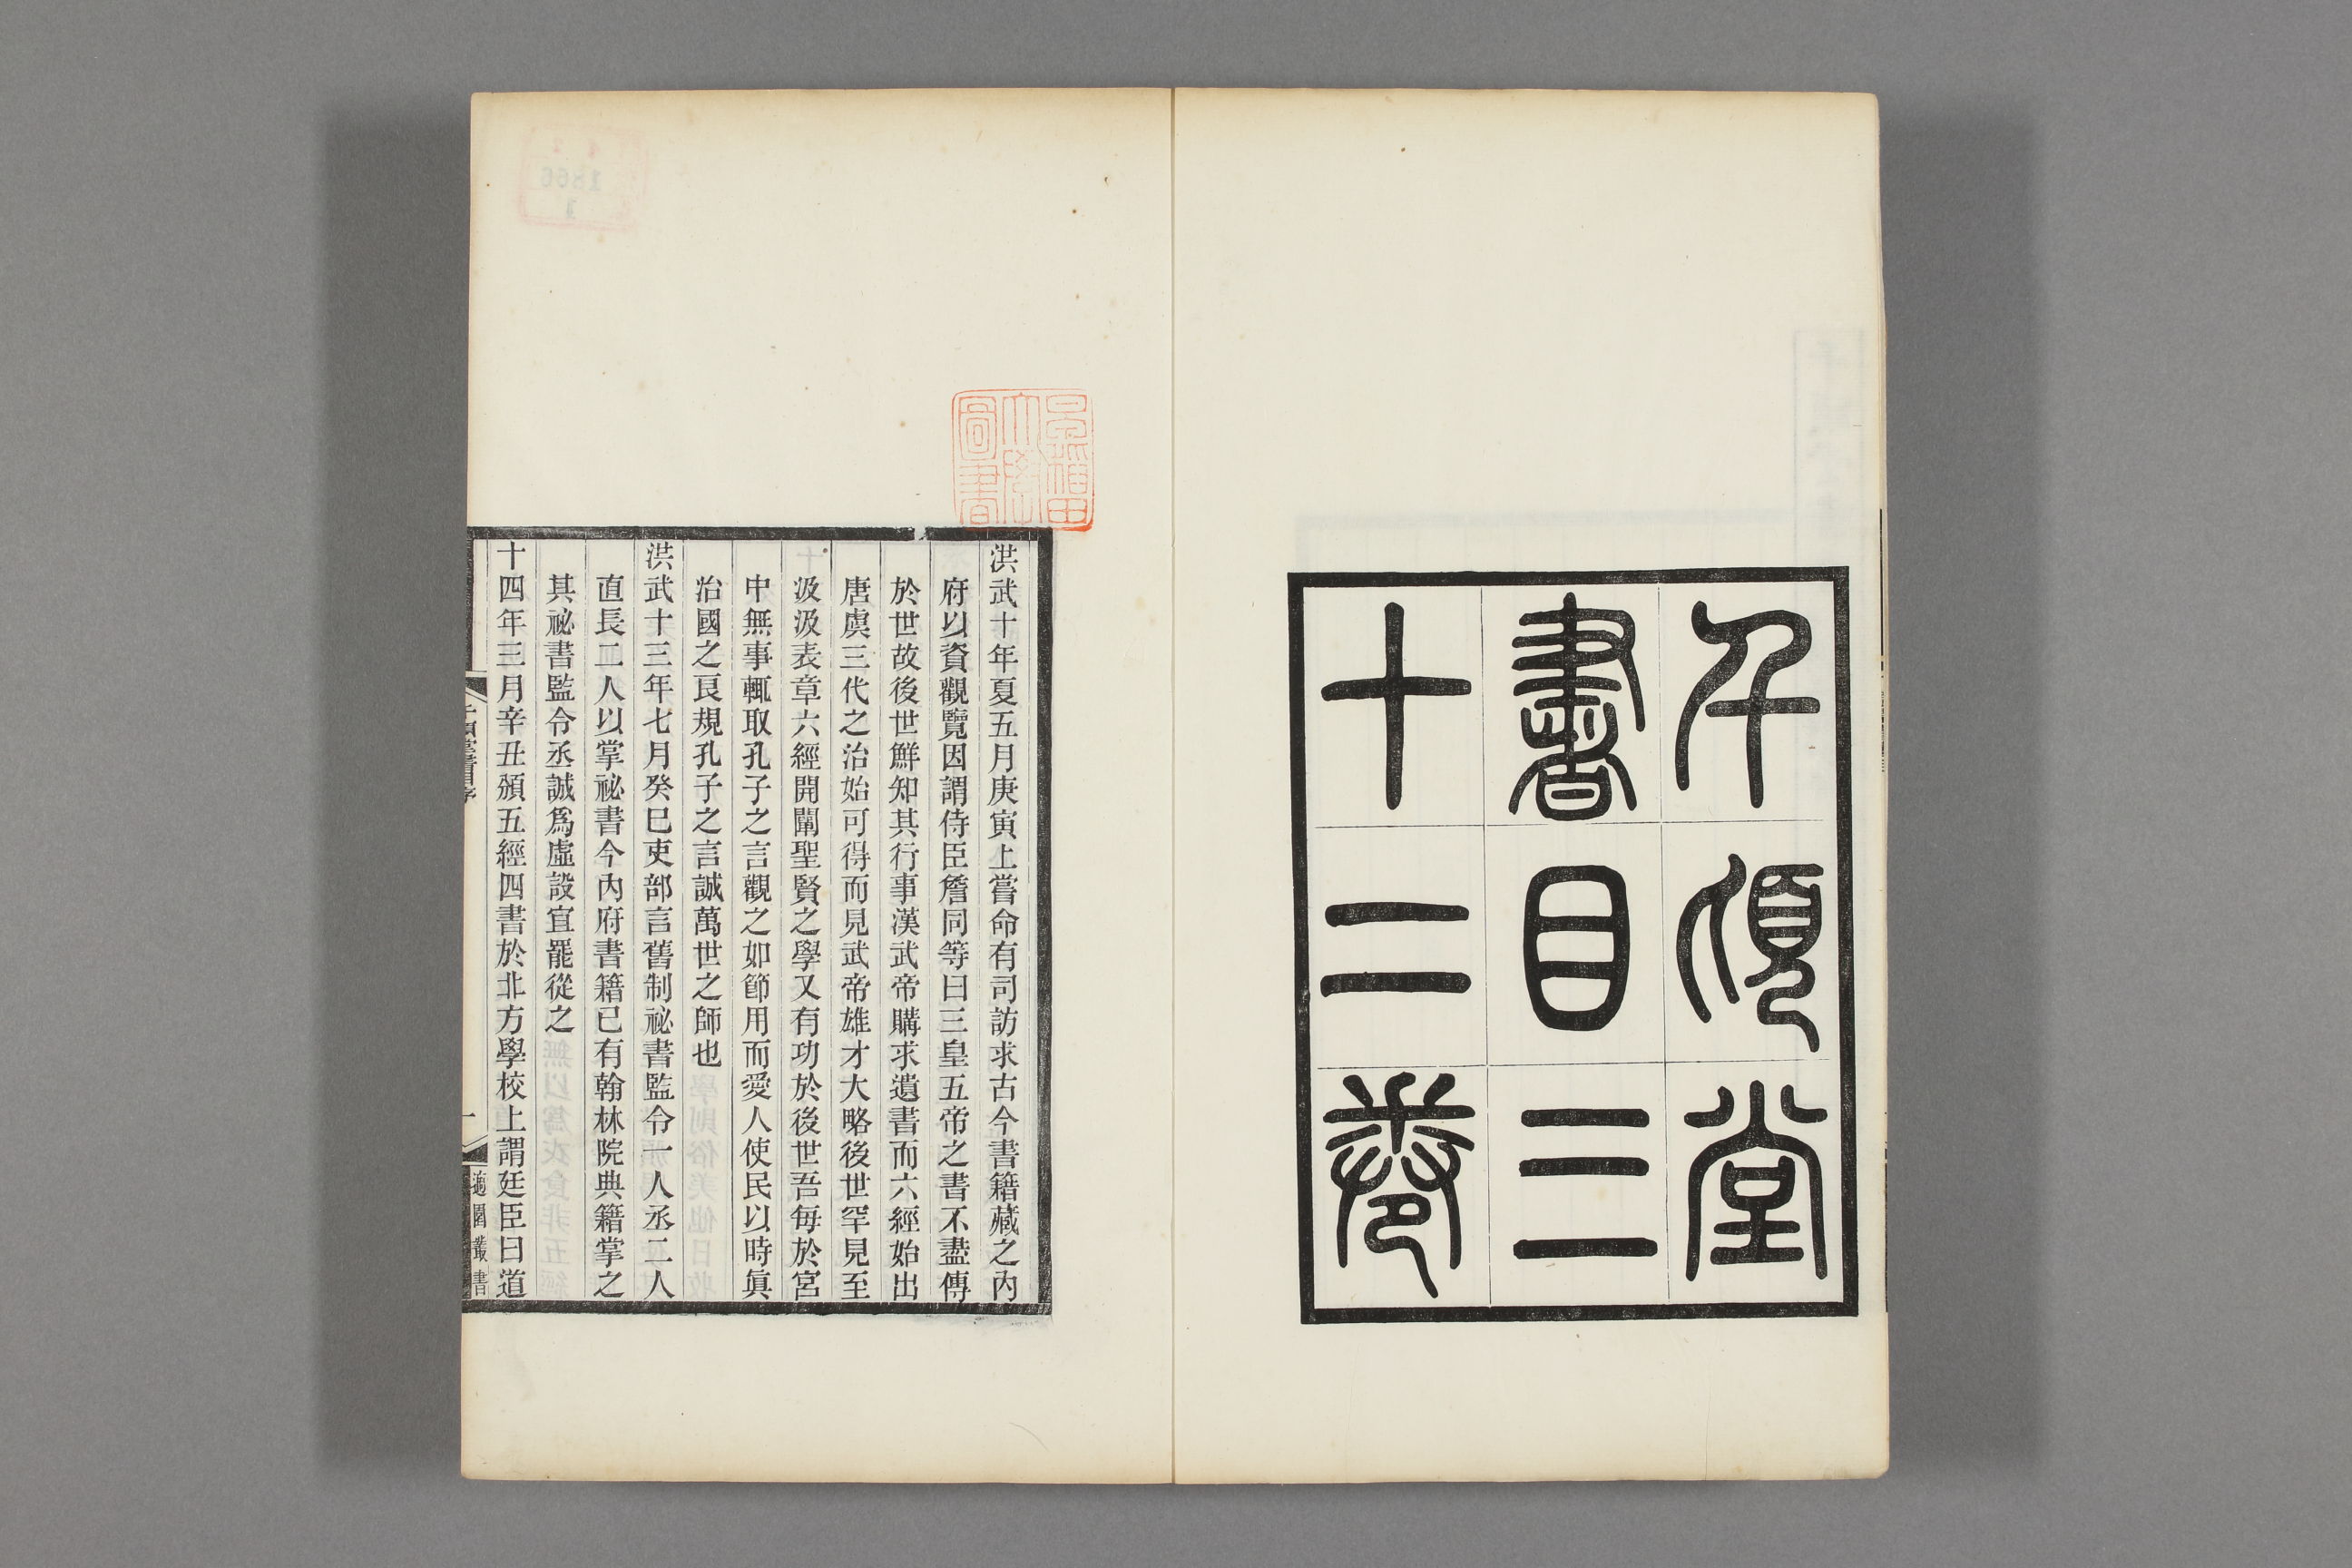 千頃堂
書目三
十二卷
洪武十年夏五月庚寅上嘗命有司訪求古今書籍藏之內
府以資觀覽因謂侍臣詹同等曰三皇五帝之書不盡傳
於世故後世鮮知其行事漢武帝購求遺書而六經始出
唐虞三代之治始可得而見武帝雄才大略後世罕見至
汲汲表章六經開闡聖賢之學又有功於後世吾每於宮
中無事輒取孔子之言觀之如節用而愛人使民以時眞
治國之良規孔子之言誠萬世之師也
洪武十三年七月癸巳吏部言舊制祕書監令一人丞二人
直長二人以掌祕書今內府書籍已有翰林院典籍掌之
其祕書監令丞誠爲虛設宜罷從之
十四年三月辛丑頒五經四書於北方學校上謂廷臣曰道
千頃堂書目序
一
適園叢書
早稲田
大學
圖書
1866
1